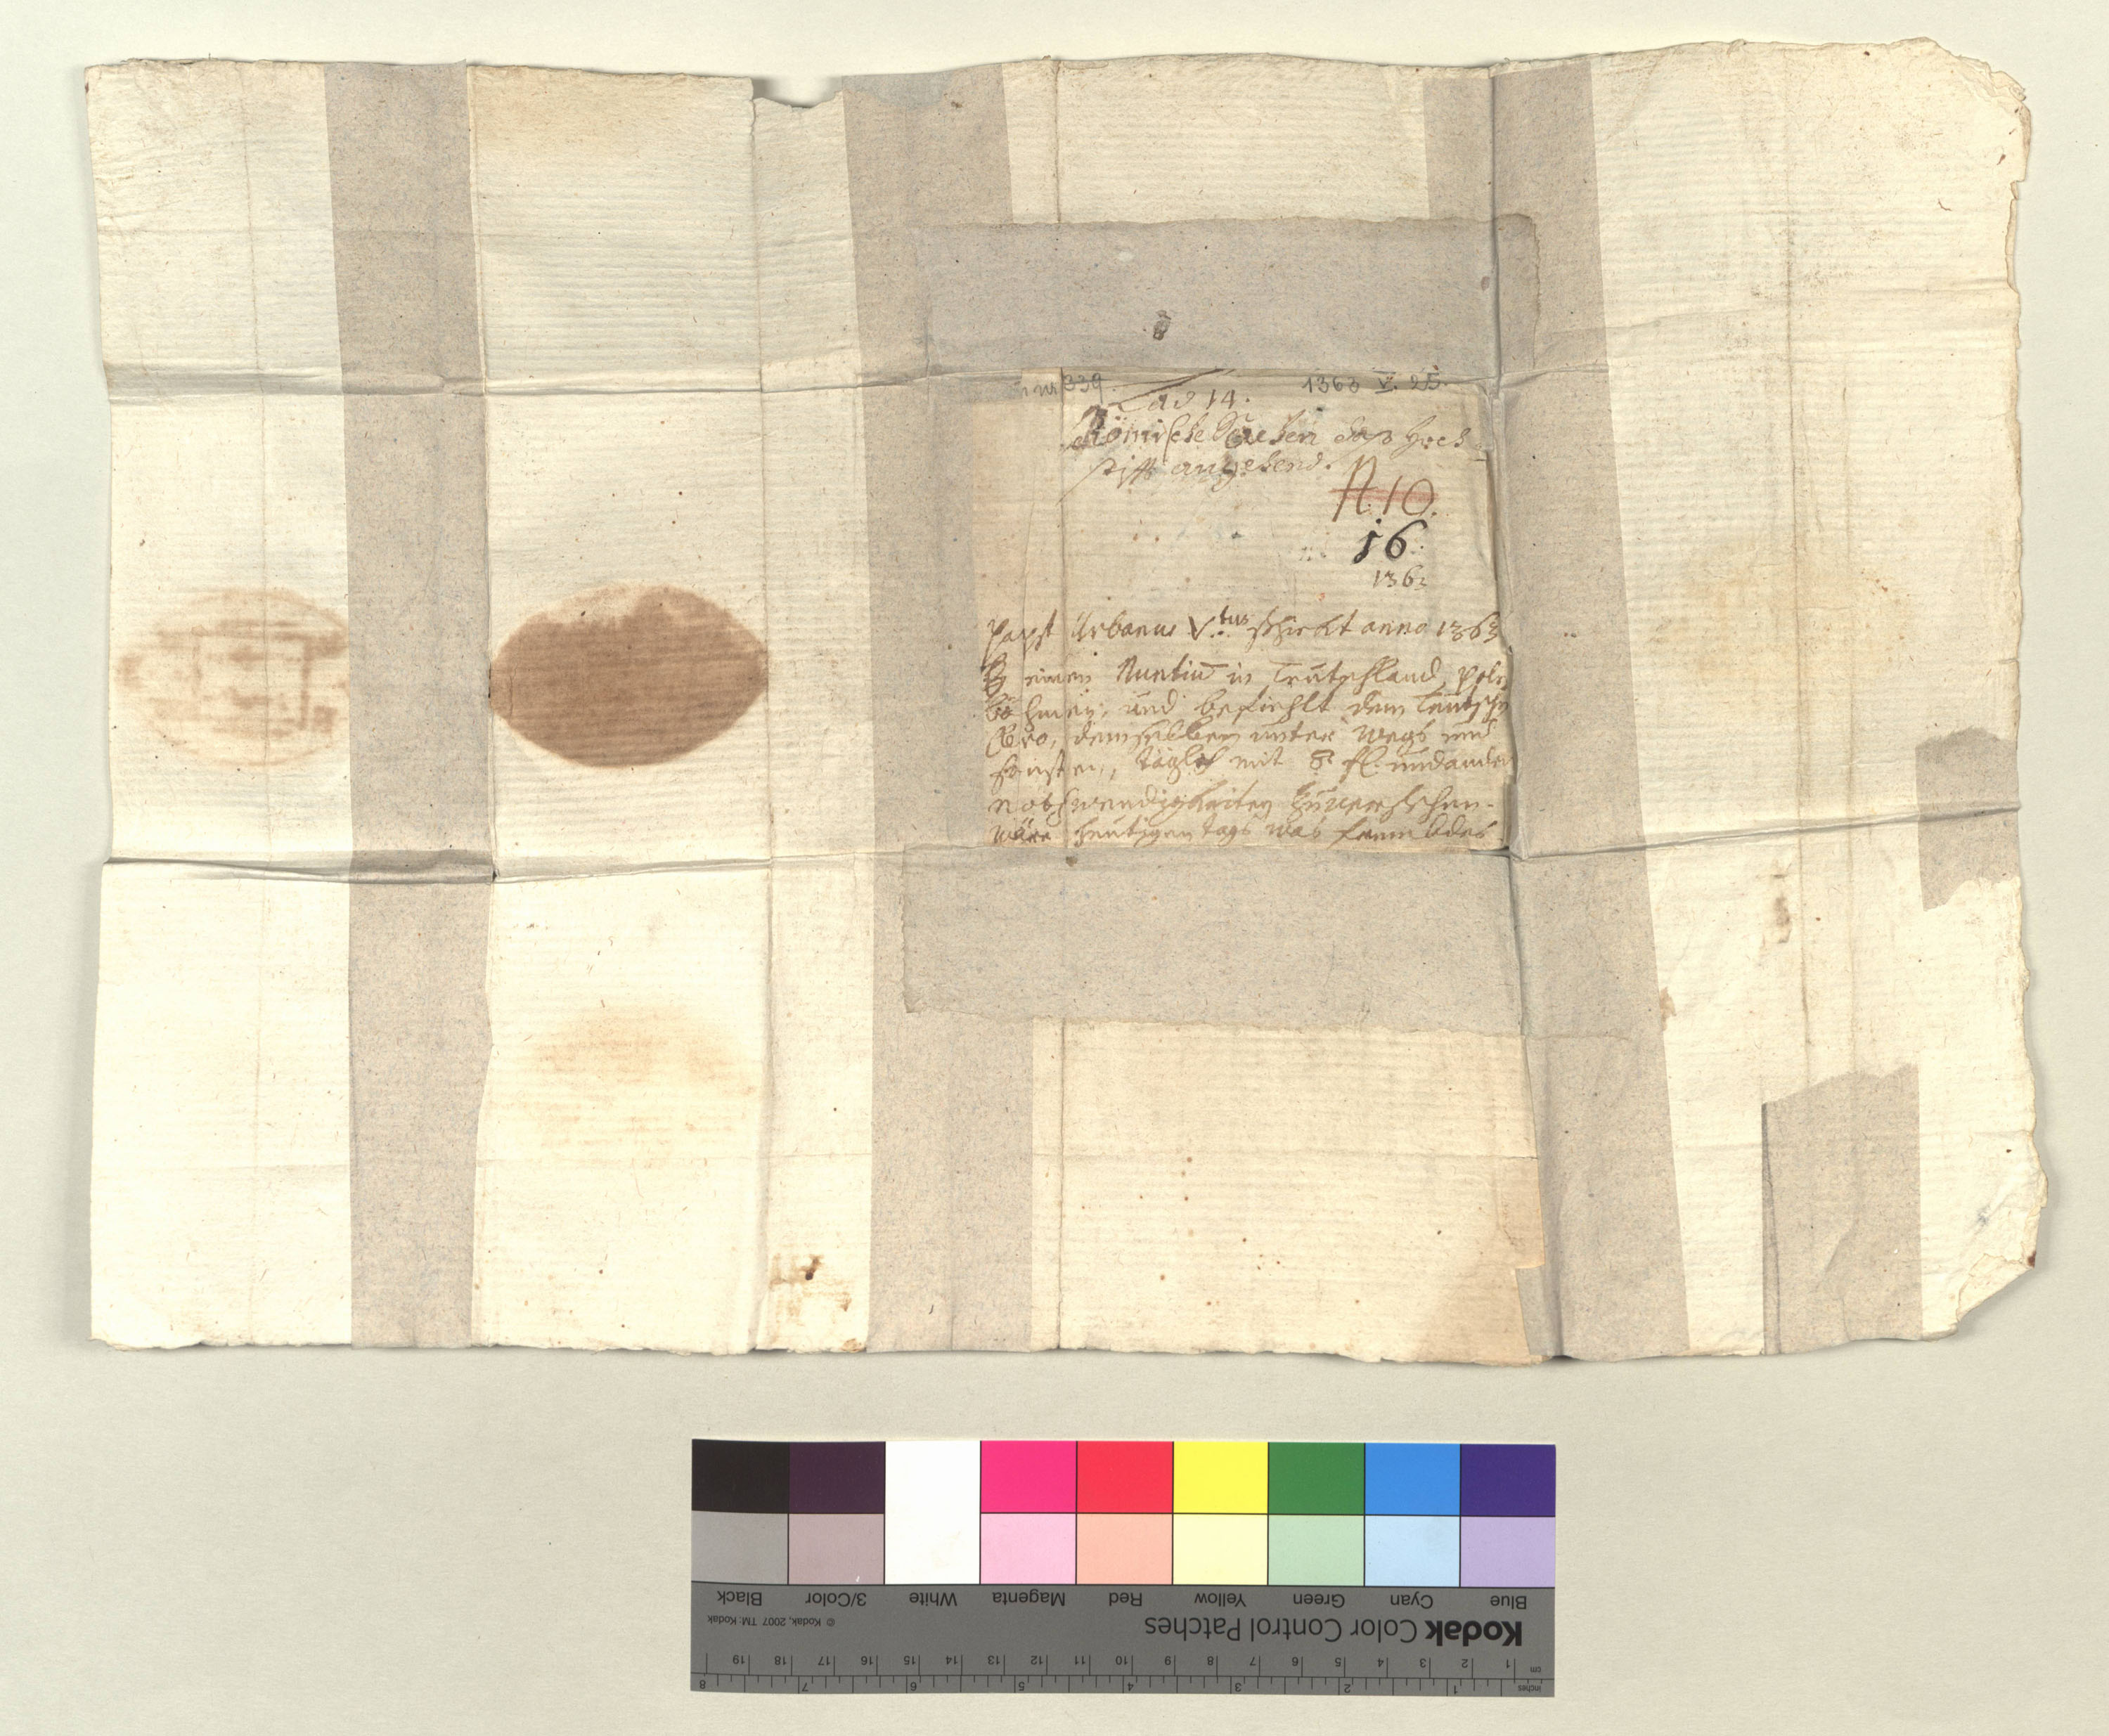 339 1363 V. 25.
Lad 14.
Römische Sachen das Hoch
stifft angehend.
N. 10.
16
1363
Papst Urbanus V.tus schickt anno 1363
einen Nuntiū in Teutschland, Poln
böhmen, und befiehlt dem Teutschn
Clero, demselben unter wegs und
sonsten, täglich mit 8 fl. und andern
nothwendigkeiten zu versehen.
wäre heutigen tags was frembdes.
Black 3/Color White Magenta Red Yellow Green Cyan Blue
© Kodak, 2007 TM: Kodak
Kodak Color Control Patches
cm 1 2 3 4 5 6 7 8 9 10 11 12 13 14 15 16 17 18 19
inches 1 2 3 4 5 6 7 8